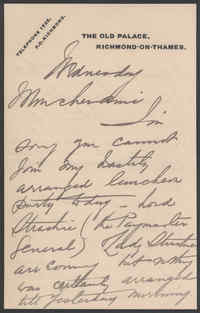 TELEPHONE 1920,
P.O. RICHMOND.
THE OLD PALACE,
RICHMOND-ON-THAMES.
Wednesday
Mon cher ami
I'm
sorry you cannot
join my hastily
arranged luncheon
party today – Lord
(the Paymaster
General) & Lady
are coming but nothing
was certainly arranged
till yesterday morning